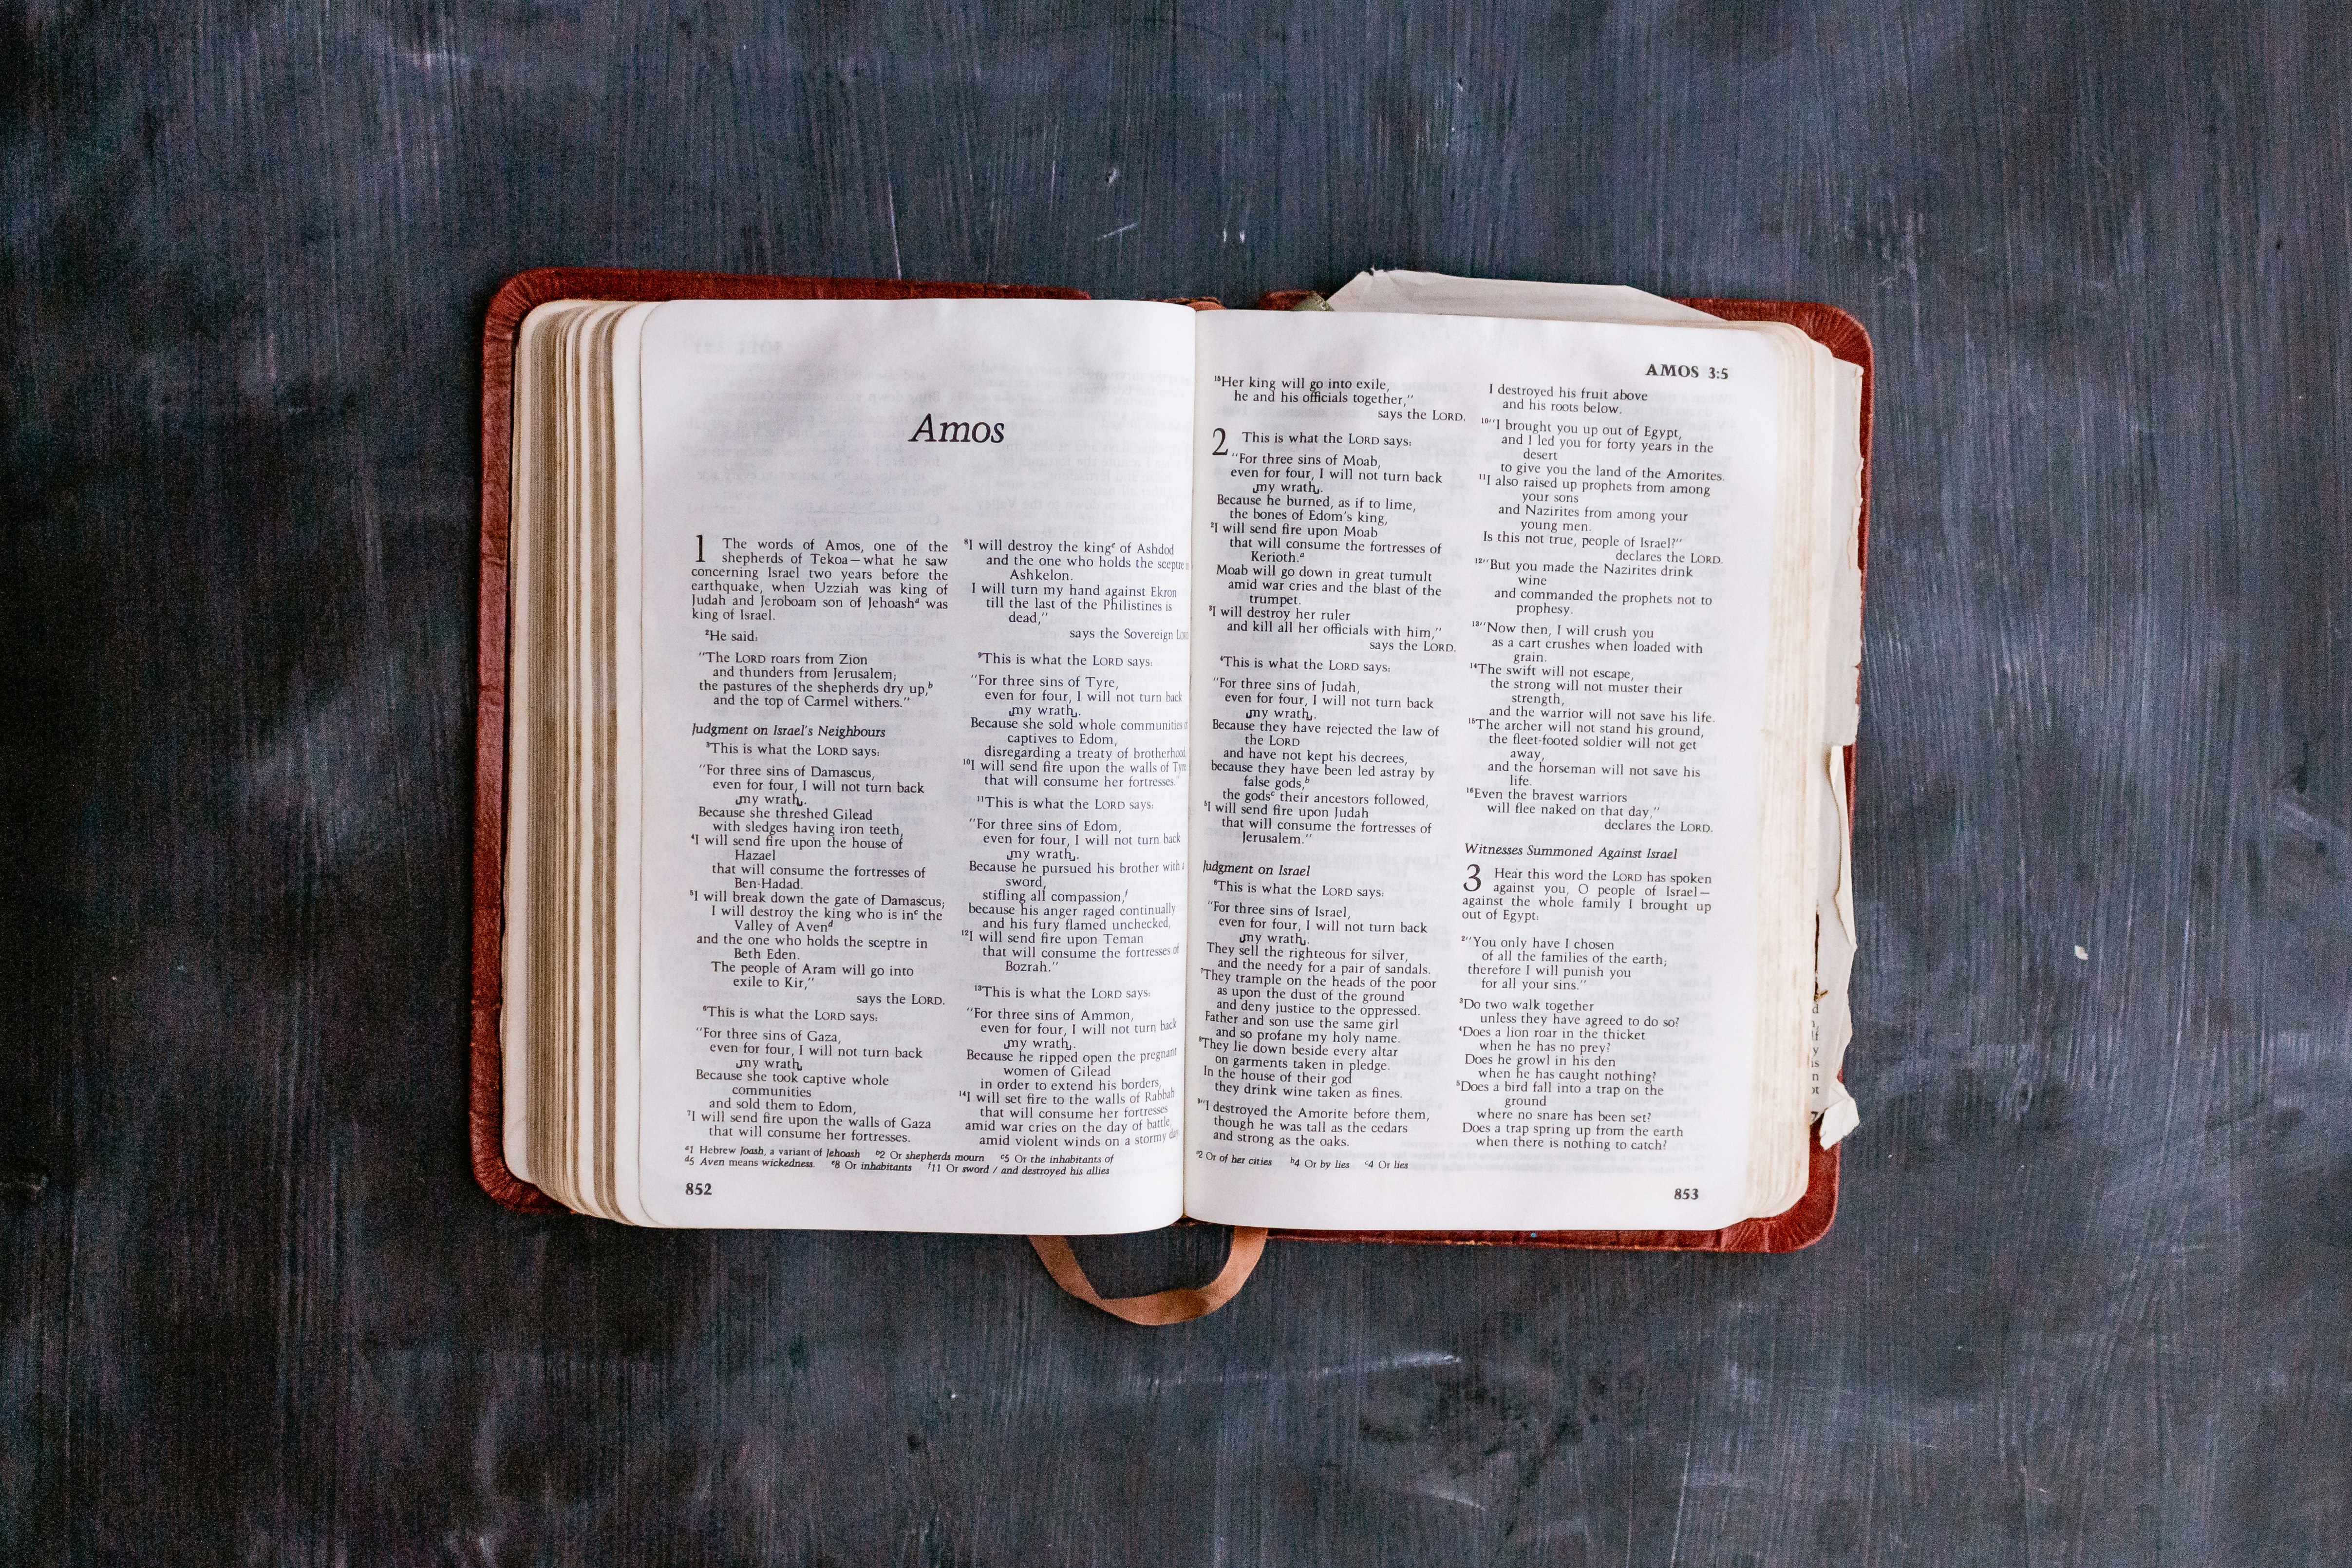 Amos
1 The words of Amos, one of the
shepherds of Tekoa—what he saw
concerning Israel two years before the
earthquake, when Uzziah was king of
Judah and Jeroboam son of Jehoashᵃ was
king of Israel.
²He said:
"The LORD roars from Zion
and thunders from Jerusalem;
the pastures of the shepherds dry up,ᵇ
and the top of Carmel withers."
Judgment on Israel's Neighbours
³This is what the LORD says:
"For three sins of Damascus,
even for four, I will not turn back
⌞my wrath⌟.
Because she threshed Gilead
with sledges having iron teeth,
⁴I will send fire upon the house of
Hazael
that will consume the fortresses of
Ben-Hadad.
⁵I will break down the gate of Damascus;
I will destroy the king who is inᶜ the
Valley of Avenᵈ
and the one who holds the sceptre in
Beth Eden.
The people of Aram will go into
exile to Kir,"
says the LORD.
⁶This is what the LORD says:
"For three sins of Gaza,
even for four, I will not turn back
⌞my wrath⌟.
Because she took captive whole
communities
and sold them to Edom,
⁷I will send fire upon the walls of Gaza
that will consume her fortresses.
⁸I will destroy the kingᵉ of Ashdod
and the one who holds the sceptre
Ashkelon.
I will turn my hand against Ekron
till the last of the Philistines is
dead,"
says the Sovereign LORD
⁹This is what the LORD says:
"For three sins of Tyre,
even for four, I will not turn back
⌞my wrath⌟.
Because she sold whole communities
captives to Edom,
disregarding a treaty of brotherhood,
¹⁰I will send fire upon the walls of Tyre
that will consume her fortresses."
¹¹This is what the LORD says:
"For three sins of Edom,
even for four, I will not turn back
⌞my wrath⌟.
Because he pursued his brother with a
sword,
stifling all compassion,ᶠ
because his anger raged continually
and his fury flamed unchecked,
¹²I will send fire upon Teman
that will consume the fortresses of
Bozrah."
¹³This is what the LORD says:
"For three sins of Ammon,
even for four, I will not turn back
⌞my wrath⌟.
Because he ripped open the pregnant
women of Gilead
in order to extend his borders,
¹⁴I will set fire to the walls of Rabbah
that will consume her fortresses
amid war cries on the day of battle,
amid violent winds on a stormy day.
ᵃ1 Hebrew Joash, a variant of Jehoash ᵇ2 Or shepherds mourn ᶜ5 Or the inhabitants of
ᵈ5 Aven means wickedness. ᵉ8 Or inhabitants ᶠ11 Or sword / and destroyed his allies
852
AMOS 3:5
¹⁵Her king will go into exile,
he and his officials together,"
says the LORD.
2 This is what the LORD says:
"For three sins of Moab,
even for four, I will not turn back
⌞my wrath⌟.
Because he burned, as if to lime,
the bones of Edom's king,
²I will send fire upon Moab
that will consume the fortresses of
Kerioth.ᵃ
Moab will go down in great tumult
amid war cries and the blast of the
trumpet.
³I will destroy her ruler
and kill all her officials with him,"
says the LORD.
⁴This is what the LORD says:
"For three sins of Judah,
even for four, I will not turn back
⌞my wrath⌟.
Because they have rejected the law of
the LORD
and have not kept his decrees,
because they have been led astray by
false gods,ᵇ
the godsᶜ their ancestors followed,
⁵I will send fire upon Judah
that will consume the fortresses of
Jerusalem."
Judgment on Israel
⁶This is what the LORD says:
"For three sins of Israel,
even for four, I will not turn back
⌞my wrath⌟.
They sell the righteous for silver,
and the needy for a pair of sandals.
⁷They trample on the heads of the poor
as upon the dust of the ground
and deny justice to the oppressed.
Father and son use the same girl
and so profane my holy name.
⁸They lie down beside every altar
on garments taken in pledge.
In the house of their god
they drink wine taken as fines.
⁹"I destroyed the Amorite before them,
though he was tall as the cedars
and strong as the oaks.
I destroyed his fruit above
and his roots below.
¹⁰"I brought you up out of Egypt,
and I led you for forty years in the
desert
to give you the land of the Amorites.
¹¹I also raised up prophets from among
your sons
and Nazirites from among your
young men.
Is this not true, people of Israel?"
declares the LORD.
¹²"But you made the Nazirites drink
wine
and commanded the prophets not to
prophesy.
¹³"Now then, I will crush you
as a cart crushes when loaded with
grain.
¹⁴The swift will not escape,
the strong will not muster their
strength,
and the warrior will not save his life.
¹⁵The archer will not stand his ground,
the fleet-footed soldier will not get
away,
and the horseman will not save his
life.
¹⁶Even the bravest warriors
will flee naked on that day,"
declares the LORD.
Witnesses Summoned Against Israel
3 Hear this word the LORD has spoken
against you, O people of Israel—
against the whole family I brought up
out of Egypt:
²"You only have I chosen
of all the families of the earth;
therefore I will punish you
for all your sins."
³Do two walk together
unless they have agreed to do so?
⁴Does a lion roar in the thicket
when he has no prey?
Does he growl in his den
when he has caught nothing?
⁵Does a bird fall into a trap on the
ground
where no snare has been set?
Does a trap spring up from the earth
when there is nothing to catch?
ᵃ2 Or of her cities ᵇ4 Or by lies ᶜ4 Or lies
853